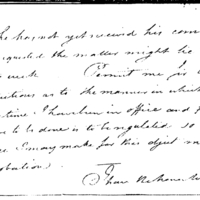 he has not yet received his com
requested the matter might be
week Permit me
uctions as to the manner in which
time I have been in office and
to be done is to be regulated so
I may make for this object
obation
I have the honor